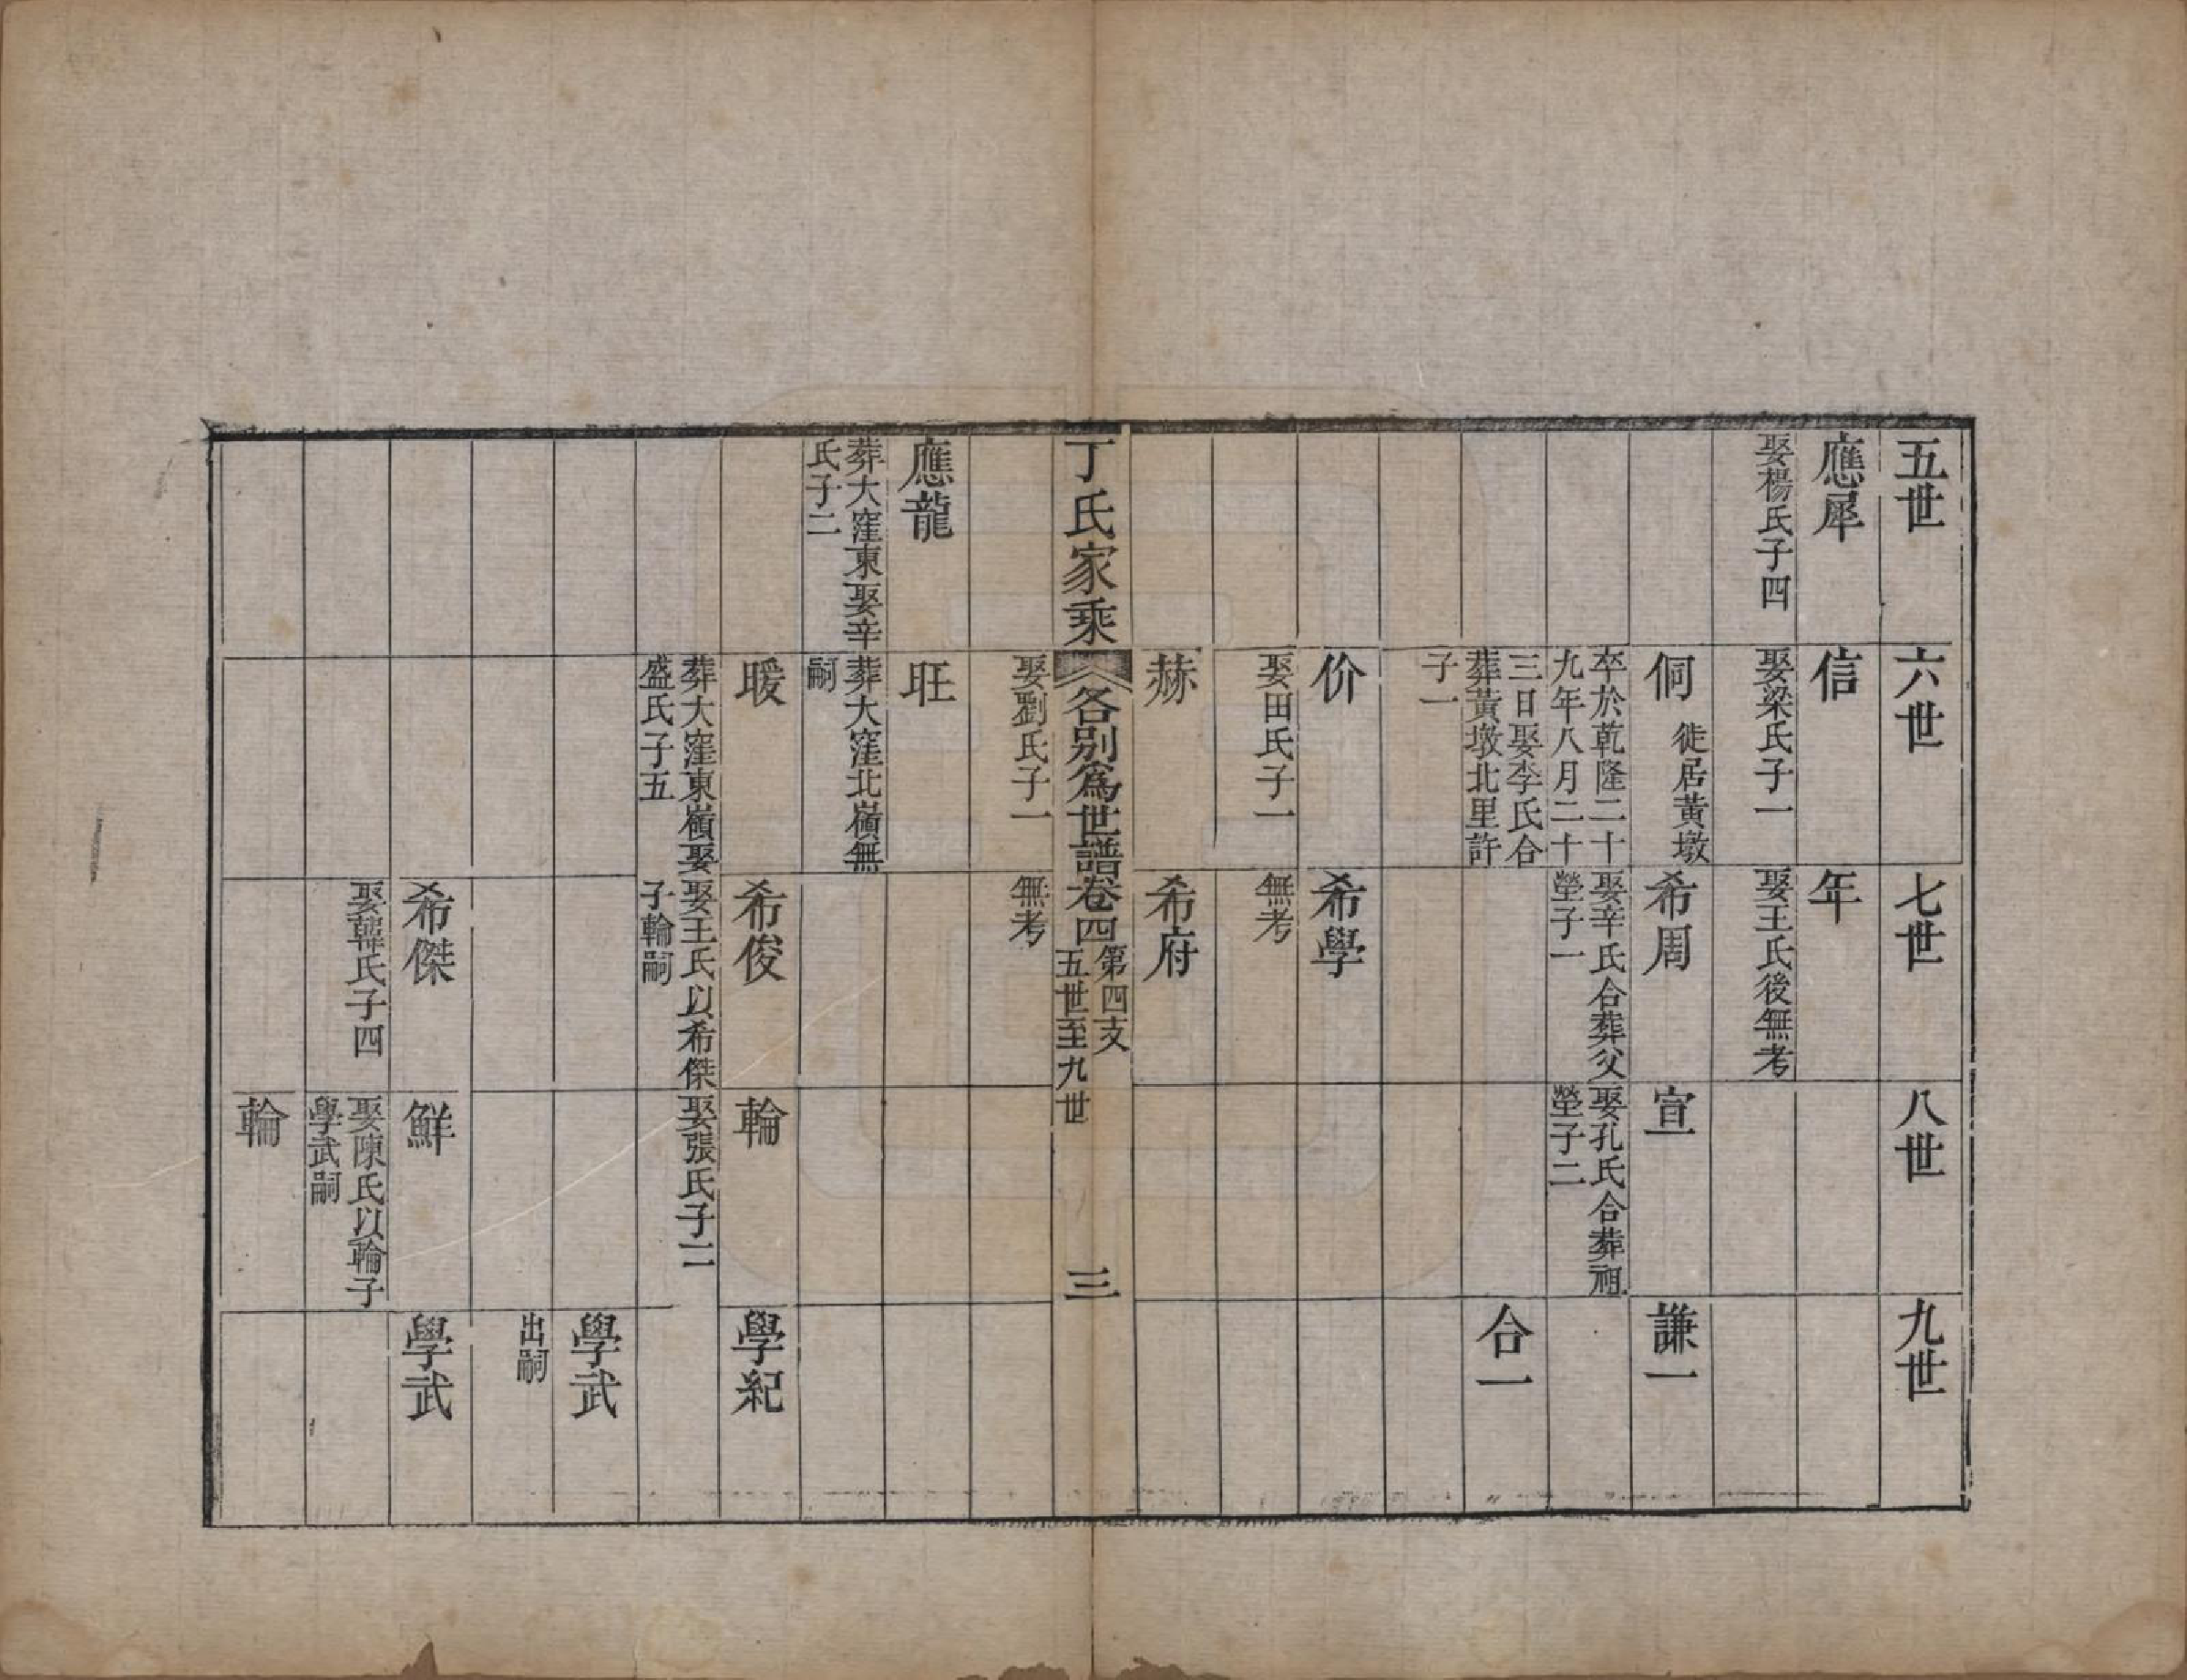 五世
六世
七世
八世
九世
應犀
娶楊氏子四
信
娶梁氏子一
年
娶王氏後無考
侗
徙居黃墩
卒於乾隆二十
九年八月二十
三日娶李氏合
葬黃墩北里許
子一
希周
娶辛氏合葬父
塋子一
宣
娶孔氏合葬祖
塋子二
謙一
合一
价
娶田氏子一
希學
無考
赫
希府
丁氏家乘
各別為世譜卷四
第四支
五世至九世
三
娶劉氏子一
無考
應龍
葬大窪東娶辛
氏子二
旺
葬大窪北嶺無
嗣
暖
葬大窪東嶺娶
盛氏子五
希俊
娶王氏以希傑
子輪嗣
輪
娶張氏子二
學紀
學武
出嗣
希傑
娶韓氏子四
鮮
娶陳氏以輪子
學武嗣
學武
輪